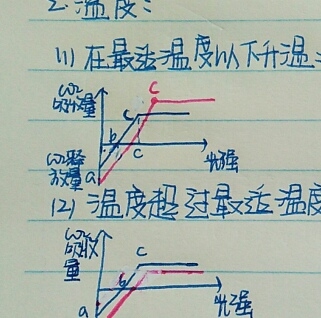 2. 温度:
(1) 在最适温度以下升温
CO₂
吸收量
C
C
b
C
CO₂释
放量
a
光强
(2) 温度超过最适温度
CO₂
吸收
量
C
b
a
光强